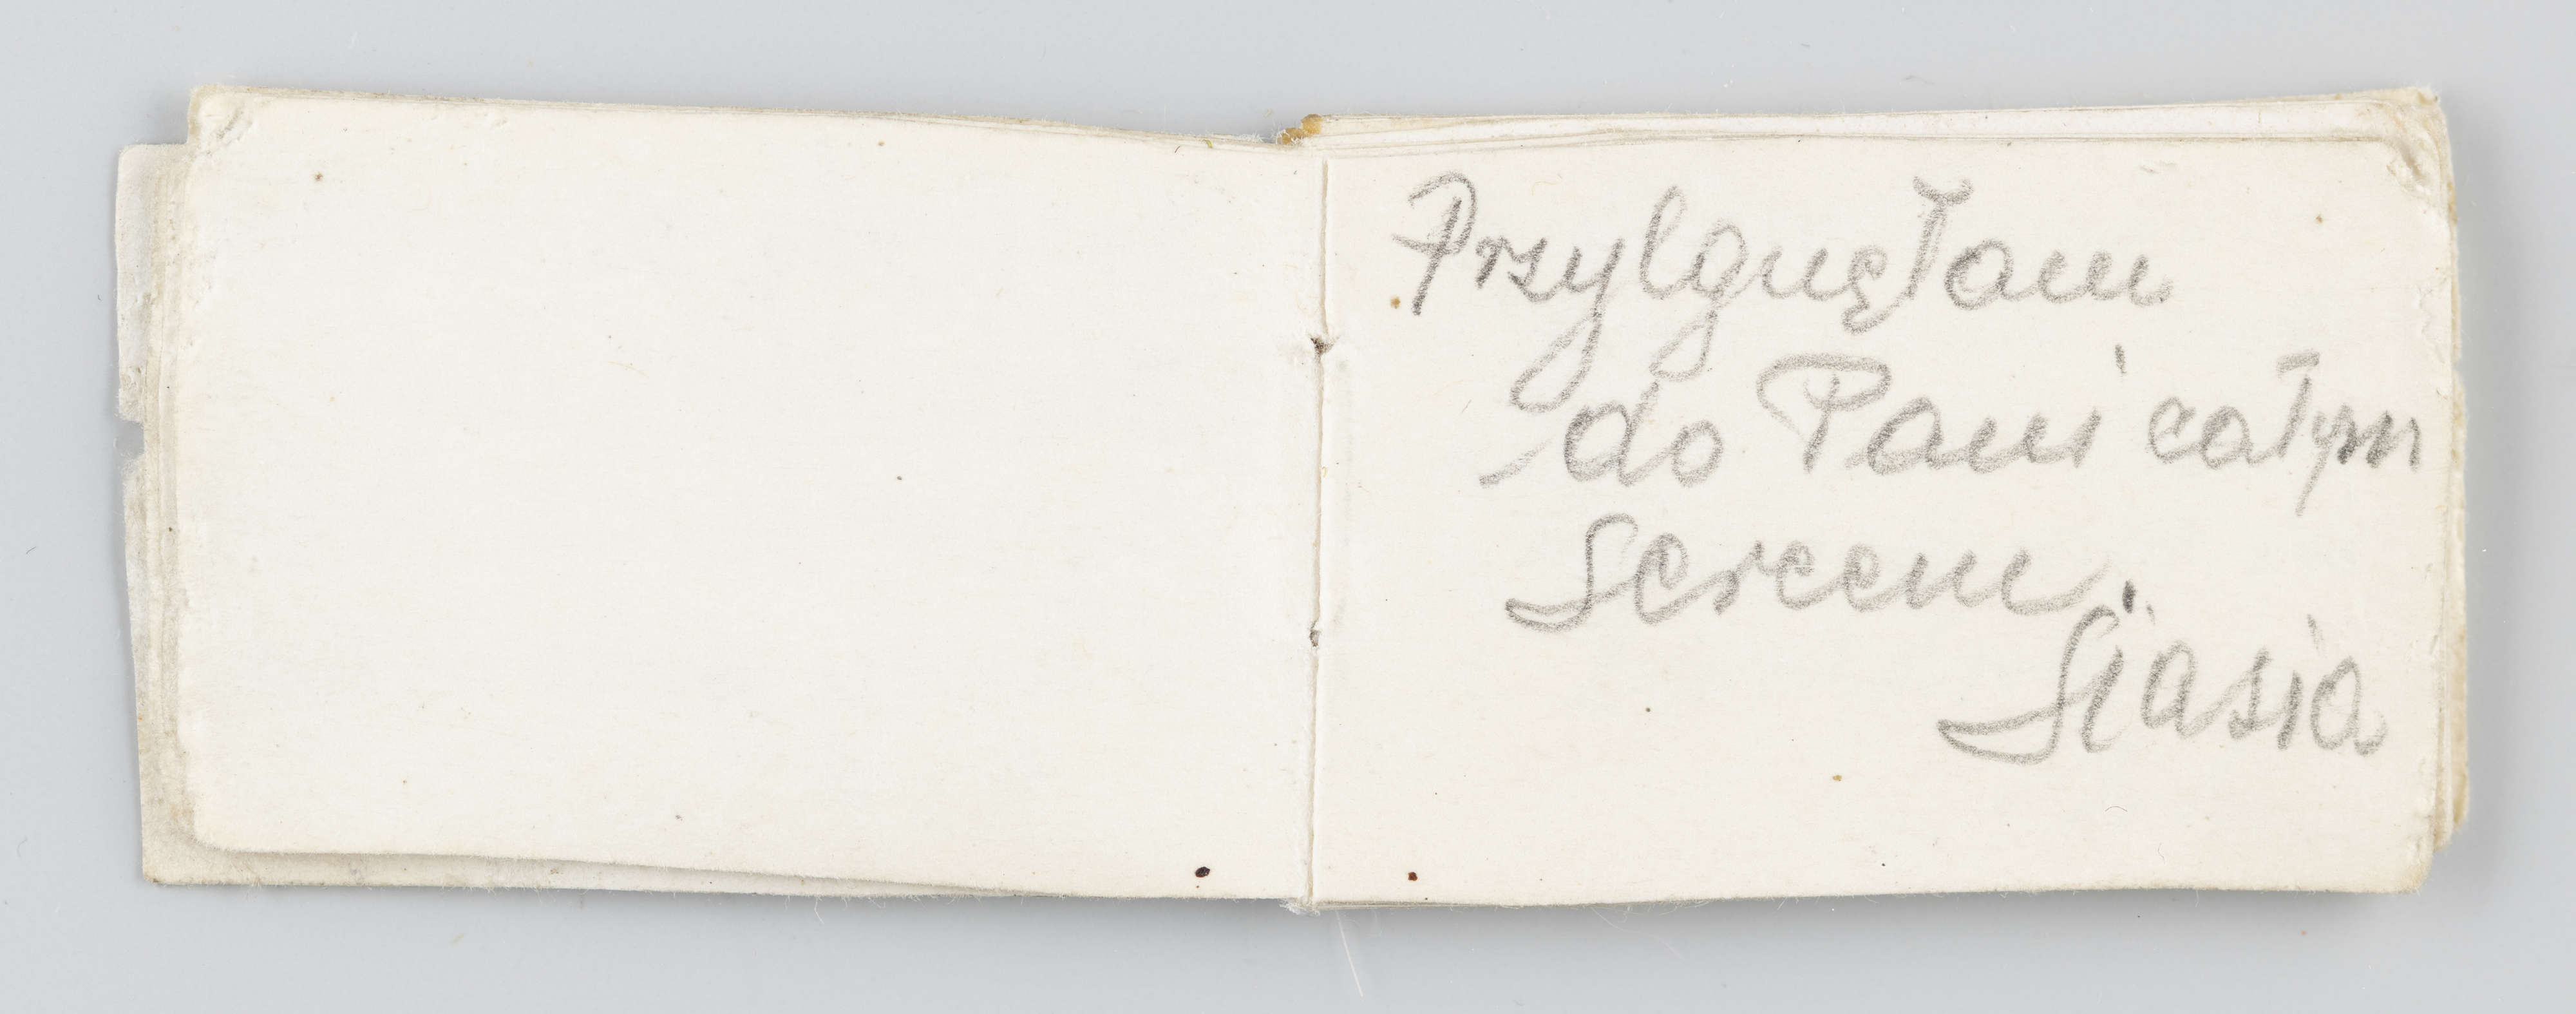 Przylgnęłam
do Pani całym
sercem.
Stasia